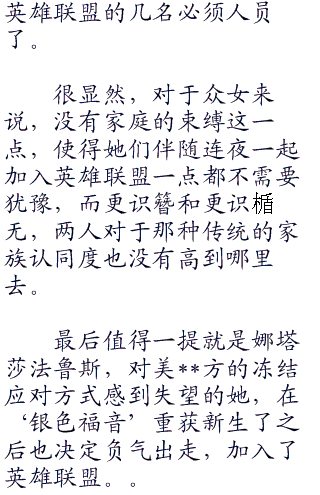 英雄联盟的几名必须人员
了。
很显然，对于众女来
说，没有家庭的束缚这一
点，使得她们伴随连夜一起
加入英雄联盟一点都不需要
犹豫，而更识簪和更识楯
无，两人对于那种传统的家
族认同度也没有高到哪里
去。
最后值得一提就是娜塔
莎法鲁斯，对美**方的冻结
应对方式感到失望的她，在
‘银色福音’重获新生了之
后也决定负气出走，加入了
英雄联盟。。